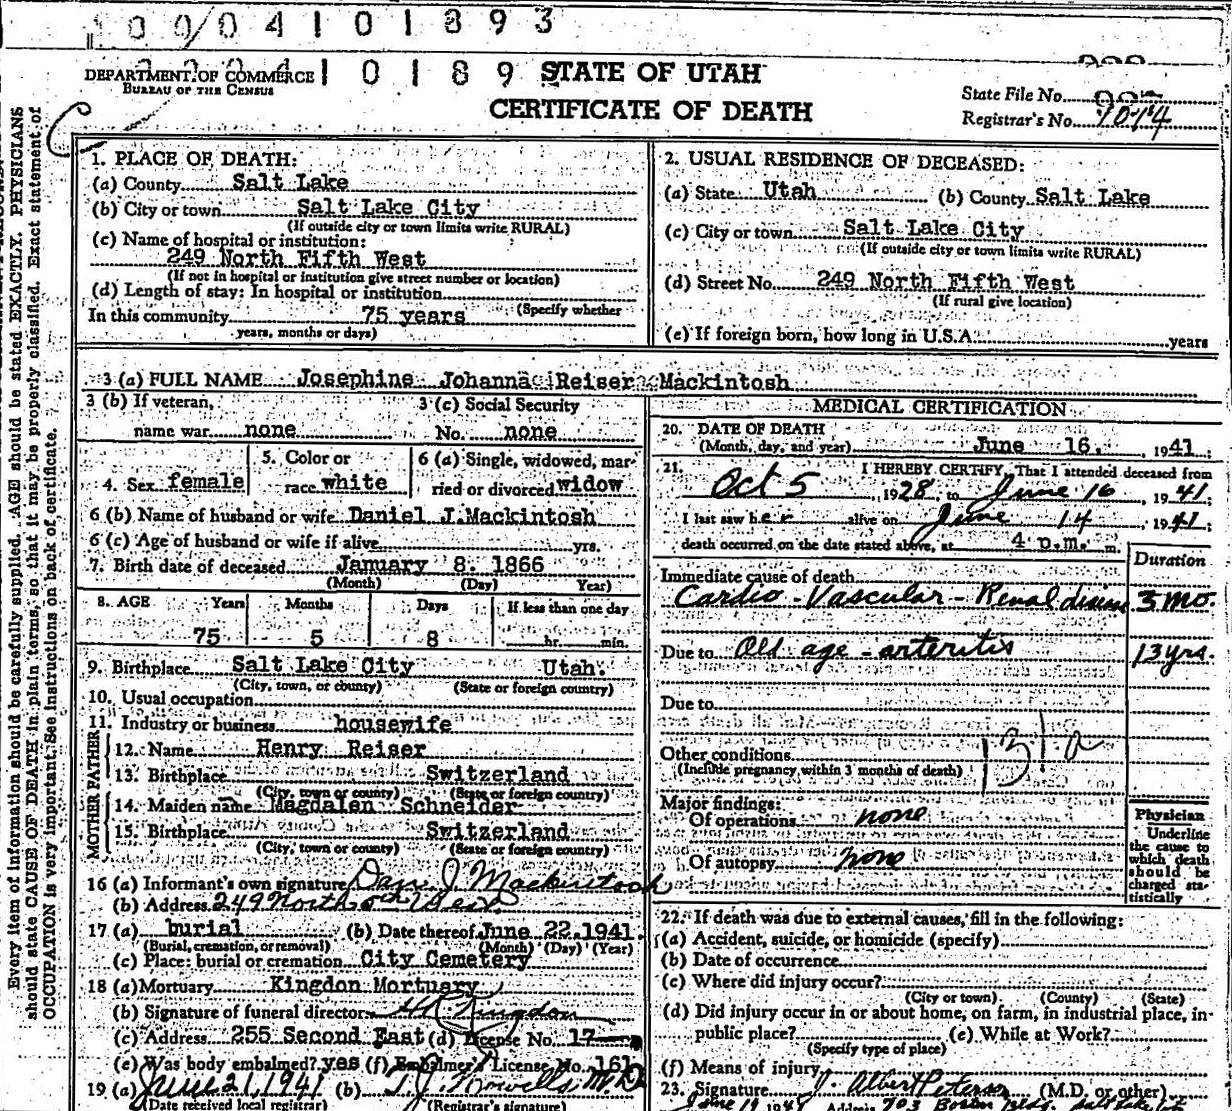 0004101893
0004101893
DEPARTMENT OF COMMERCE
BUREAU OF THE CENSUS
STATE OF UTAH
CERTIFICATE OF DEATH
State File No.
Registrar's No. 1014
Every item of information should be carefully supplied. AGE should be stated EXACTLY. PHYSICIANS
should state CAUSE OF DEATH in plain terms, so that it may be properly classified. Exact statement of
OCCUPATION is very important. See instructions on back of certificate.
1. PLACE OF DEATH:
(a) County Salt Lake
(b) City or town Salt Lake City
(If outside city or town limits write RURAL)
(c) Name of hospital or institution:
249 North Fifth West
(If not in hospital or institution give street number or location)
(d) Length of stay: In hospital or institution
(Specify whether
In this community 75 years
years, months or days)
2. USUAL RESIDENCE OF DECEASED:
(a) State Utah (b) County Salt Lake
(c) City or town Salt Lake City
(If outside city or town limits write RURAL)
(d) Street No. 249 North Fifth West
(If rural give location)
(e) If foreign born, how long in U.S.A. years
3 (a) FULL NAME Josephine Johanna Reiser Mackintosh
3 (b) If veteran, 3 (c) Social Security
name war none No. none
4. Sex female 5. Color or race white 6 (a) Single, widowed, married or divorced widow
6 (b) Name of husband or wife Daniel J.Mackintosh
6 (c) Age of husband or wife if alive yrs.
7. Birth date of deceased January 8. 1866
(Month) (Day) Year)
8. AGE Years Months Days If less than one day
75 5 8 hr. min.
9. Birthplace Salt Lake City Utah.
(City, town, or county) (State or foreign country)
10. Usual occupation
11. Industry or business housewife
FATHER
12. Name Henry Reiser
13. Birthplace Switzerland
(City, town or county) (State or foreign country)
MOTHER
14. Maiden name Magdalen Schneider
15. Birthplace Switzerland
(City, town or county) (State or foreign country)
16 (a) Informant's own signature Dan J. Mackintosh
(b) Address 249 North 5th West
17 (a) burial (b) Date thereof June 22.1941.
(Burial, cremation, or removal) (Month) (Day) (Year)
(c) Place: burial or cremation City Cemetery
18 (a) Mortuary Kingdon Mortuary
(b) Signature of funeral director Kingdon
(c) Address 255 Second East (d) License No. 17
(e) Was body embalmed? yes (f) Embalmer's License No. 161
19 (a) June 21, 1941 (b) M.D.
(Date received local registrar) (Registrar's signature)
MEDICAL CERTIFICATION
20. DATE OF DEATH
(Month, day, and year) June 16. , 1941;
21. I HEREBY CERTIFY, That I attended deceased from
Oct 5 , 1928, to June 16 , 1941;
I last saw her alive on June 14 , 1941;
death occurred on the date stated above, at 4 p.m. m.
Duration
Immediate cause of death
Cardio-Vascular-Renal disease 3 mo.
Due to Old age - arteritis 13 yrs.
Due to
Other conditions
(Include pregnancy within 3 months of death)
131a
Major findings:
Of operations none
Of autopsy none
Physician
Underline
the cause to
which death
should be
charged sta-
tistically
22. If death was due to external causes, fill in the following:
(a) Accident, suicide, or homicide (specify)
(b) Date of occurrence
(c) Where did injury occur?
(City or town) (County) (State)
(d) Did injury occur in or about home, on farm, in industrial place, in-
public place? (e) While at Work?
(Specify type of place)
(f) Means of injury
23. Signature J. Albert Peterson (M.D. or other)
Address 703 Boston Bldg.